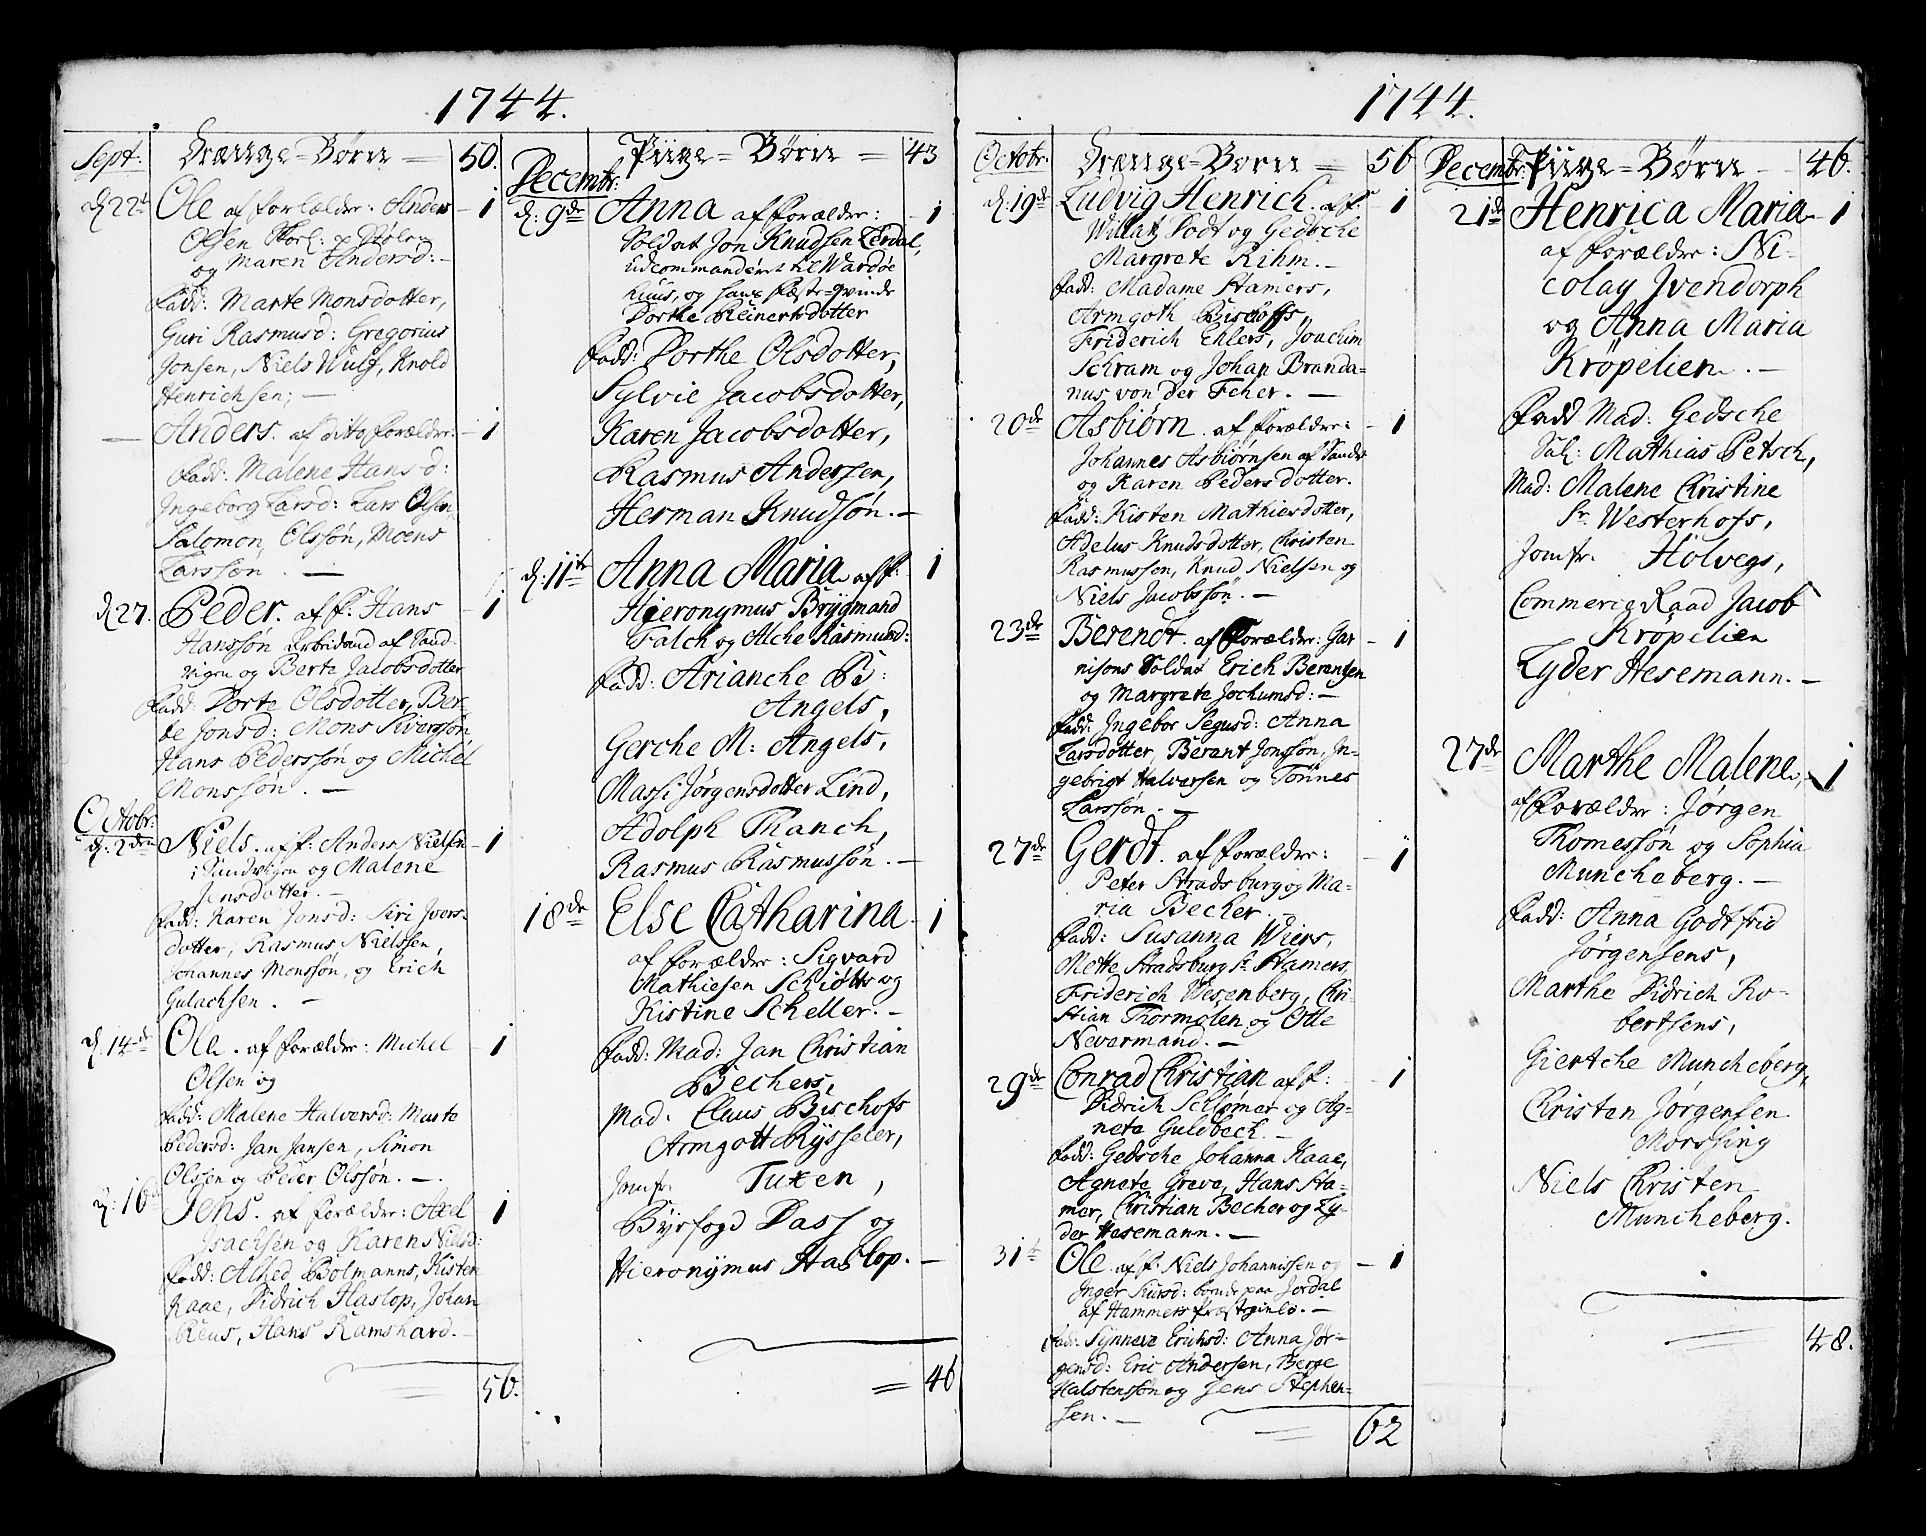 1744.
Sept. Drænge=Børn = 50.
d. 22t Ole af forældre. Anders - 1
Olsen
og Maren Andersd: -
fadd: Marte Monsdotter,
Guri Rasmusd: Gregorius
Jonsen, Niels Wulf, Knold
Henrichsen; -
— Anders. af ditto forældre: - 1
fadd: Malene Hansd:
Ingeborg Larsd: Lars Olsen,
Salomon Olssøn, Moens
Larssøn. —
d 27. Peder. af f: Hans - 1
Hanssøn Arbeidsmd af Sand-
vigen og Berte Jacobsdotter
fadd: Dorte Olsdotter, Ber-
te Jonsd: Mons Siverssøn
Hans Pederssøn og Michel
Monssøn. —
Octobr:
d. 2den Niels. af f: Anders Nielsen - 1
i Sandvigen og Malene
Jensdotter. —
fadd: Karen Jonsd: Siri Ivers-
dotter, Rasmus Nielssen,
Johannes Monssøn, og Erich
Gulachsen. —
d. 14de Ole. af forældre: Michel - 1
Olsen og
fadd: Malene Halversd: Marte
Pedersd: Jan Jansen, Simon
Olssen og Peder Olssøn. —
d: 16 Jens. af forældre: Axel - 1
Isachsen og Karen Nielsd:
fadd: Alhed Bolmanns, Kisten
Kaae, Didrich Haslop, Johan
Reus, Hans Ramshard. -
= 56.
Piige = Børn = 43
Decembr:
d: 9de Anna af forældre: - 1
Soldat Jon Knudsen Lerdal,
udcommanderet til Wardøe
huus, og hans fæste-qvinde
Dorthe Reinertsdotter
fadd: Dorthe Olsdotter,
Sylvie Jacobsdotter,
Karen Jacobsdotter,
Rasmus Andersen,
Herman Knudsøn. -
d: 11te Anna Maria af f: 1
Hieronymus Brygmand
Falch og Alche Rasmusd:
fadd: Arianche B:
Angels,
Gerche M: Angels,
Massi Jørgensdotter Lind,
Adolph Thanch,
Rasmus Rasmussøn. -
18de Else Catharina. 1
af forældre: Sigvard
Mathiesen Schiøtt og
Kistine Scheller. -
fadd: Mad: Jan Christian
Bechers,
Mad. Claus Bischofs
Armgott Rysseler,
Jomfr. Tuxen,
Byefogd Dass og
Hieronymus Haslop. —
= 46
1744.
Octobr. Drænge=Børn = 56
d. 19de Ludvig Henrich. af f. 1
Willatz Dodt og Gedsche
Margrete Rihm. -
fadd: Madame Stamers,
Armgoth Bischoffs,
Friderich Ehlers, Joachim
Schram og Johan Branda-
nus von der Fehr. -
20de Asbiørn. af forældre: - 1
Johannes Asbiørnsen af Sandv
og Karen Pedersdotter.
fadd: Kisten Mathiesdotter,
Adelus Knudsdotter, Christen
Rasmussen, Knud Nielsen og
Niels Jacobssøn. —
23de Berendt. af forældre: Gar - 1
nisons Soldat Erich Berentsen
og Margrete Jochumsd: -
fadd: Ingebor Segusd: Anna
Larsdotter, Berant Jonssøn, In-
gebrigt Halversen og Tønnes
Larssøn. —
27de Gerdt. af forældre: - 1
Peter Stradsburg og Ma-
ria Becher. -
fadd: Susanna Wiers,
Mette Stradsburg Sr Stamers,
Friderich Wesenberg, Chri
stian Thormølen og Otte
Nevermand. —
29de Conrad Christian af f: - 1
Didrich Schlømer og Ag-
neta Guldbech. -
fadd: Gedsche Johanna Kaae,
Agnete Greve, Hans Sta-
mer, Christian Becher og Ly-
der Hesemann. —
31te Ole. af f: Niels Johannissen og - 1
Inger Siursd: bønder paa Jordal
af Hammers Præstegield. —
fad: Synneve Erichsd: Anna Jør-
gensd: Eric Andersen, Berge
Halstenssøn og Jens Stephen-
sen. —
62
Decembr: Piige=Børn - - 46.
21de Henrica Maria - 1
af forældre: Ni-
colay Jvendorph
og Anna Maria
Krøpelien. —
fadd Mad: Gedsche
Sal: Mathias Petsch,
Mad: Malene Christine
Sr. Westerhofs,
Jomfr. Holvegs,
Commerie Raad Jacob
Krøpelien
Lyder Hesemann. -
27de Marthe Malene, 1
af forældre: Jørgen
Thomessøn og Sophia
Muncheberg. —
fadd: Anna Godtfrid
Jørgensens,
Marthe Didrich Ro-
bertsens,
Giertche Muncheberg,
Christen Jørgensen
Morssing
Niels Christen
Muncheberg.
= 48.